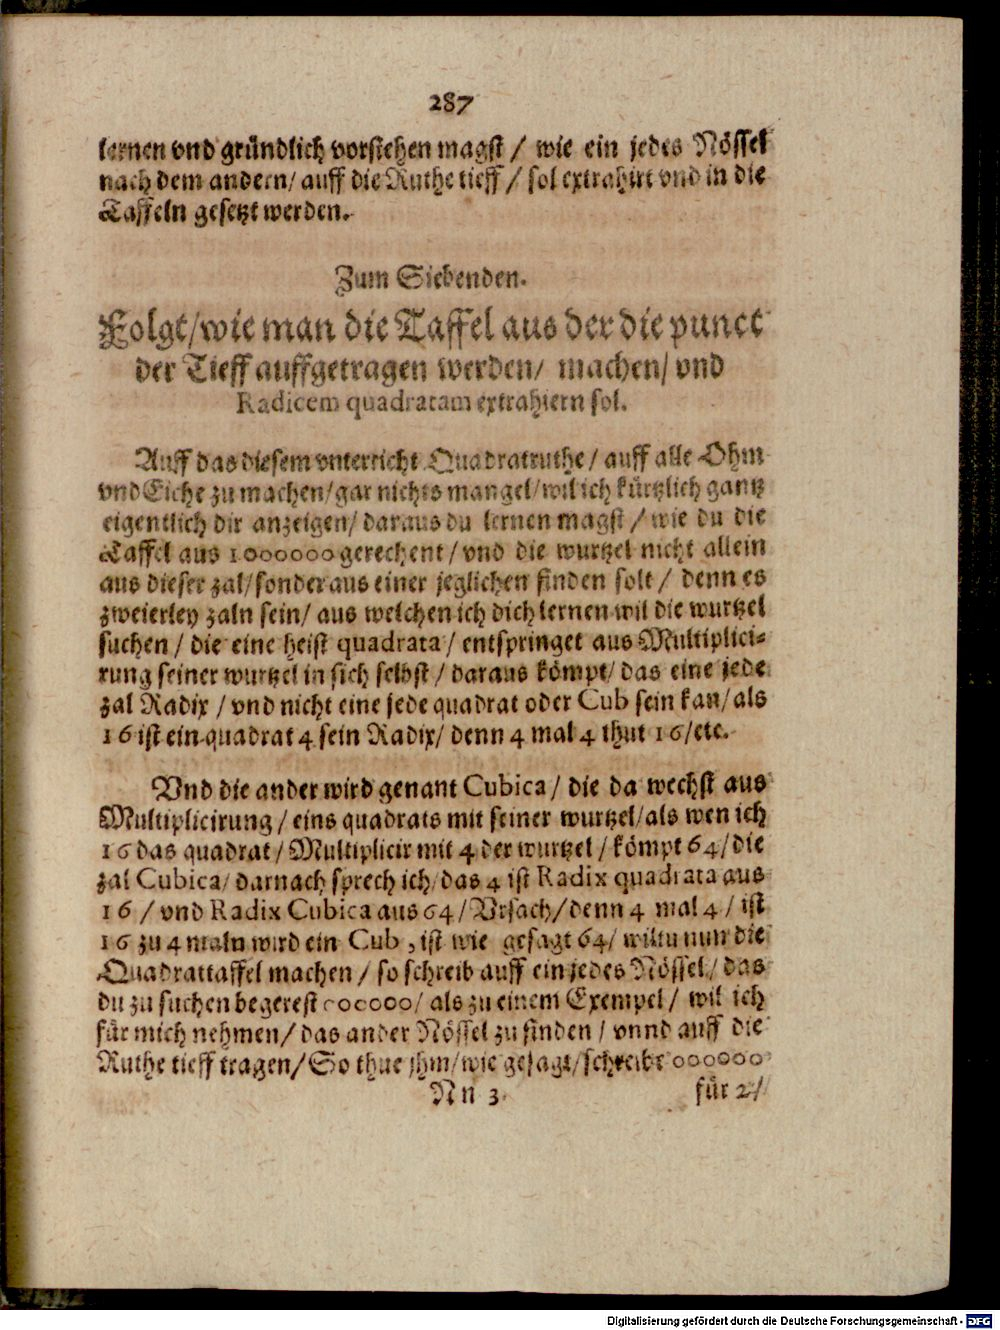 287
lernen vnd gründlich vorstehen magst / wie ein jedes Nössel
nach dem andern/ auff die Ruthe tieff / sol extrahirt vnd in die
Taffeln gesetzt werden.
Zum Siebenden.
Folgt/wie man die Taffel aus der die punct
der Tieff auffgetragen werden/ machen/ vnd
Radicem quadratam extrahiern sol.
Auff das diesem vnterricht Quadratruthe / auff alle Ohm
vnd Eiche zu machen/gar nichts mangel/wil ich kürtzlich gantz
eigentlich dir anzeigen/ daraus du lernen magst / wie du die
Taffel aus 1000000 gerechent / vnd die wurtzel nicht allein
aus dieser zal/sonder aus einer jeglichen finden solt / denn es
zweierley zaln sein/ aus welchen ich dich lernen wil die wurtzel
suchen / die eine heist quadrata / entspringet aus Multiplici-
rung seiner wurtzel in sich selbst / daraus kömpt/ das eine jede
zal Radix / vnd nicht eine jede quadrat oder Cub sein kan/als
16 ist ein quadrat 4 sein Radix/ denn 4 mal 4 thut 16/etc.
Vnd die ander wird genant Cubica / die da wechst aus
Multiplicirung / eins quadrats mit seiner wurtzel/als wen ich
16 das quadrat / Multiplicir mit 4 der wurtzel / kömpt 64/ die
zal Cubica/ darnach sprech ich/ das 4 ist Radix quadrata aus
16 / vnd Radix Cubica aus 64 / Vrsach/denn 4 mal 4 / ist
16 zu 4 maln wird ein Cub , ist wie gesagt 64/ wiltu nun die
Quadrattaffel machen / so schreib auff ein jedes Nössel / das
du zu suchen begerest 000000/ als zu einem Exempel / wil ich
für mich nehmen/ das ander Nössel zu finden / vnnd auff die
Ruthe tieff tragen/ So thue jhm/wie gesagt/schreibe 000000
Nn 3
für 2/
Digitalisierung gefördert durch die Deutsche Forschungsgemeinschaft - DFG